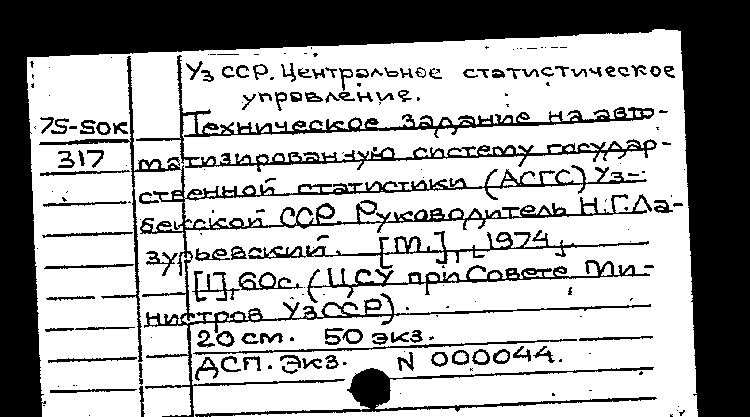 Уз ССР. Центральное статистическое
управление.
75-50к
Техническое задание на авто-
317
матизированную систему государ-
ственной статистики (АСГС) Уз-
бекской ССР. Руководитель Н.Г.Ла-
зурьевский. [Т.], [1974].
[1], 60с. (ЦСУ при Совете Ми-
нистров УзССР).
20 см. 50 экз.
ДСП. Экз. N 000044.